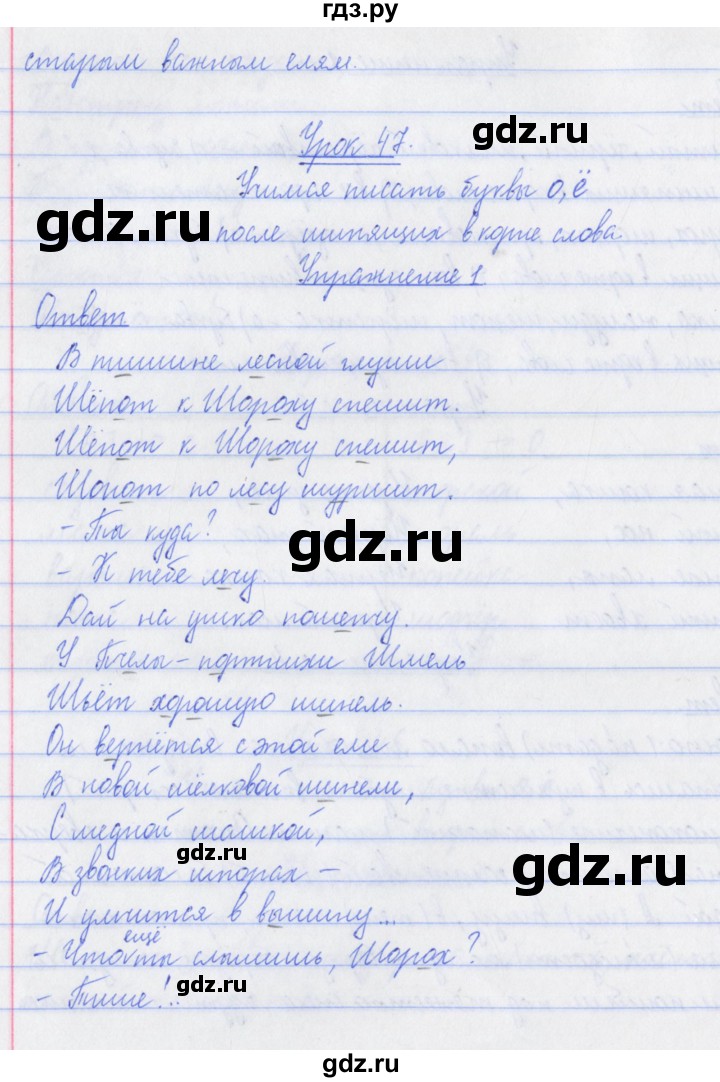 гдз.ру
старым важным елям.
Урок 47.
gdz.ru
Учимся писать буквы о, ё
gdz.ru
после шипящих в корне слова
Упражнение 1
Ответ
В тишине лесной глуши
Шёпот к Шороху спешит.
Шёпот к Шороху спешит,
Шопот по лесу шуршит.
- Ты куда?
gdz.ru
- К тебе лечу.
Дай на ушко пошепчу.
У Пчелы - портнихи Шмель
Шьёт хорошую шинель.
Он вернётся с этой ели
В новой шёлковой шинели,
С медной шашкой,
gdz.ru
В звонких шпорах -
gdz.ru
И умчится в вышину...
- Что ещё ты слышишь, Шорох?
- Тише!..
gdz.ru
gdz.ru